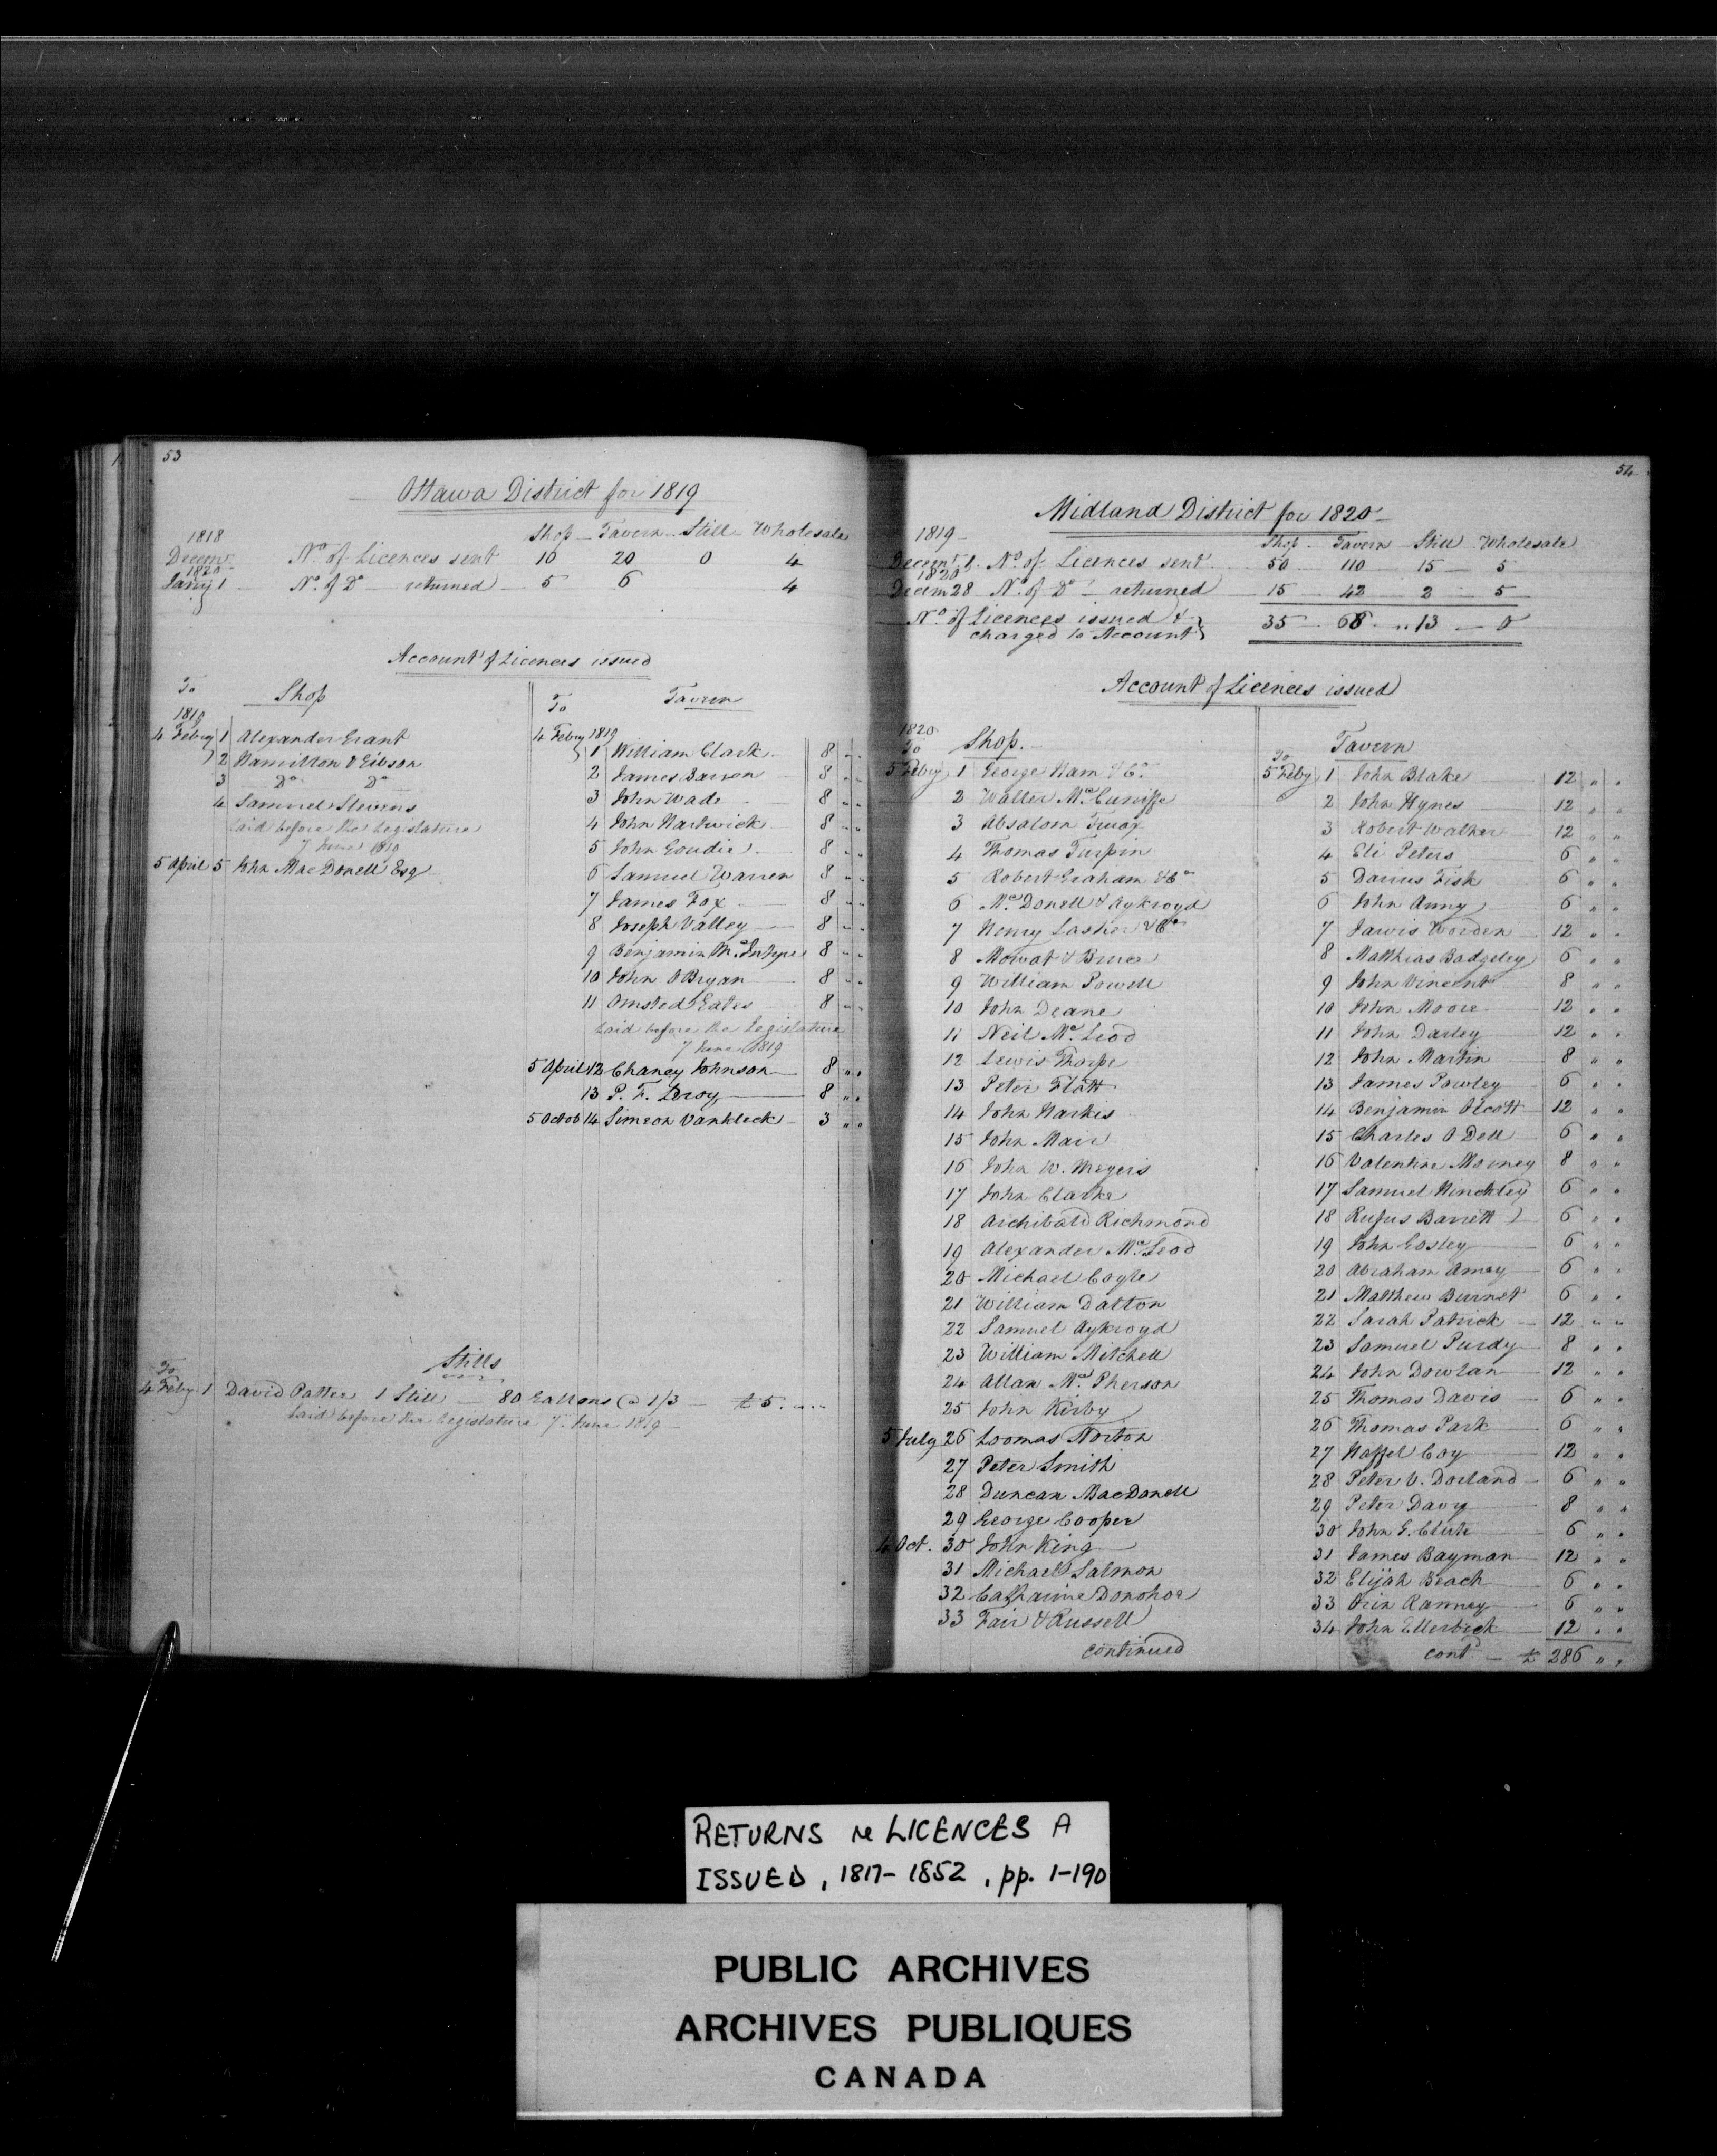 53
Ottawa District for 1819
Shop Tavern Still Wholesale
1818
Decemr No. of Licences sent 10 20 0 4
1820
Jany 1 No. of Do returned 5 6 4
Account of Licences issued
To Shop
1819
4 Febry 1 Alexander Grant
2 Hamilton & Gibson
3 Do Do
4 Samuel Stevens
Laid before the Legislature
7 June 1819
5 April 5 John MacDonell Esq
To Tavern
4 Febry 1819
1 William Clark 8 " "
2 James Barron 8 " "
3 John Wade 8 " "
4 John Hartwick 8 " "
5 John Goudie 8 " "
6 Samuel Warren 8 " "
7 James Fox 8 " "
8 Joseph Valley 8 " "
9 Benjamin McIntyre 8 " "
10 John O Bryan 8 " "
11 Omsted Gates 8 " "
Laid before the Legislature
7 June 1819
5 April 12 Chaney Johnson 8 " "
13 P. F. Leroy 8 " "
5 Octob 14 Simeon Vankleck 3 " "
Stills
To
4 Feby 1 David Pattee 1 Still — 80 Gallons @ 1/3 — £ 5 . " "
Laid before the Legislature 7 June 1819
54
Midland District for 1820
1819
Shop Tavern Still Wholesale
Decemr 1 No. of Licences sent 50 110 15 5
1820
Decem 28 No. of Do returned 15 42 2 5
No. of Licences issued &
charged to Account 35 68 13 0
Account of Licences issued
1820
To Shop
5 Feby 1 George Ham & Co.
2 Walter McCuniffe
3 Absalom Truax
4 Thomas Turpin
5 Robert Graham & Co
6 McDonell & Aykroyd
7 Henry Lasher & Co
8 Mowat & Bruce
9 William Powell
10 John Deane
11 Neil McLeod
12 Lewis Thorpe
13 Peter Flatt
14 John Harkis
15 John Mair
16 John W. Meyers
17 John Clarke
18 Archibald Richmond
19 Alexander McLeod
20 Michael Coyle
21 William Dalton
22 Samuel Aykroyd
23 William Mitchell
24 Allan McPherson
25 John Kirby
5 July 26 Loomas Norton
27 Peter Smith
28 Duncan MacDonell
29 George Cooper
4 Oct. 30 John King
31 Michael Salmon
32 Catharine Donohoe
33 Fair & Russell
continued
To Tavern
5 Feby 1 John Blake 12 " "
2 John Hynes 12 " "
3 Robert Walker 12 " "
4 Eli Peters 6 " "
5 Darius Fisk 6 " "
6 John Anny 6 " "
7 Jarvis Worden 12 " "
8 Matthias Badgeley 6 " "
9 John Vincent 8 " "
10 John Moore 12 " "
11 John Darley 12 " "
12 John Martin 8 " "
13 James Powley 6 " "
14 Benjamin Olcott 12 " "
15 Charles O Dell 6 " "
16 Valentine Morney 8 " "
17 Samuel Hinckley 6 " "
18 Rufus Barrett 6 " "
19 John Gosley 6 " "
20 Abraham Amey 6 " "
21 Matthew Burnet 6 " "
22 Sarah Patrick 12 " "
23 Samuel Purdy 8 " "
24 John Dowlan 12 " "
25 Thomas Davis 6 " "
26 Thomas Park 6 " "
27 Haffel Coy 12 " "
28 Peter V. Dorland 6 " "
29 Peter Davy 8 " "
30 John G. Clute 6 " "
31 James Bayman 12 " "
32 Elijah Beach 6 " "
33 Orin Ranney 6 " "
34 John Ellerbeck 12 " "
contd — £ 286 " "
RETURNS re LICENCES A
ISSUED, 1817-1852, pp. 1-190
PUBLIC ARCHIVES
ARCHIVES PUBLIQUES
CANADA